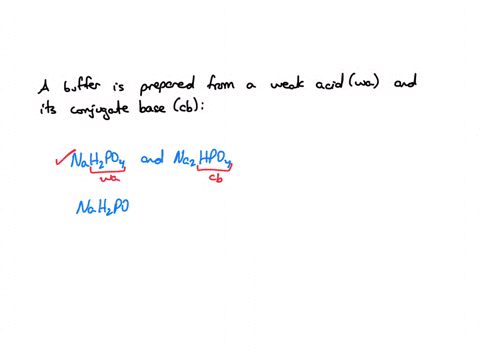 A buffer is prepared from a weak acid (wa) and
its conjugate base (cb):
✓ NaH₂PO₄ and Na₂HPO₄
wa cb
NaH₂PO